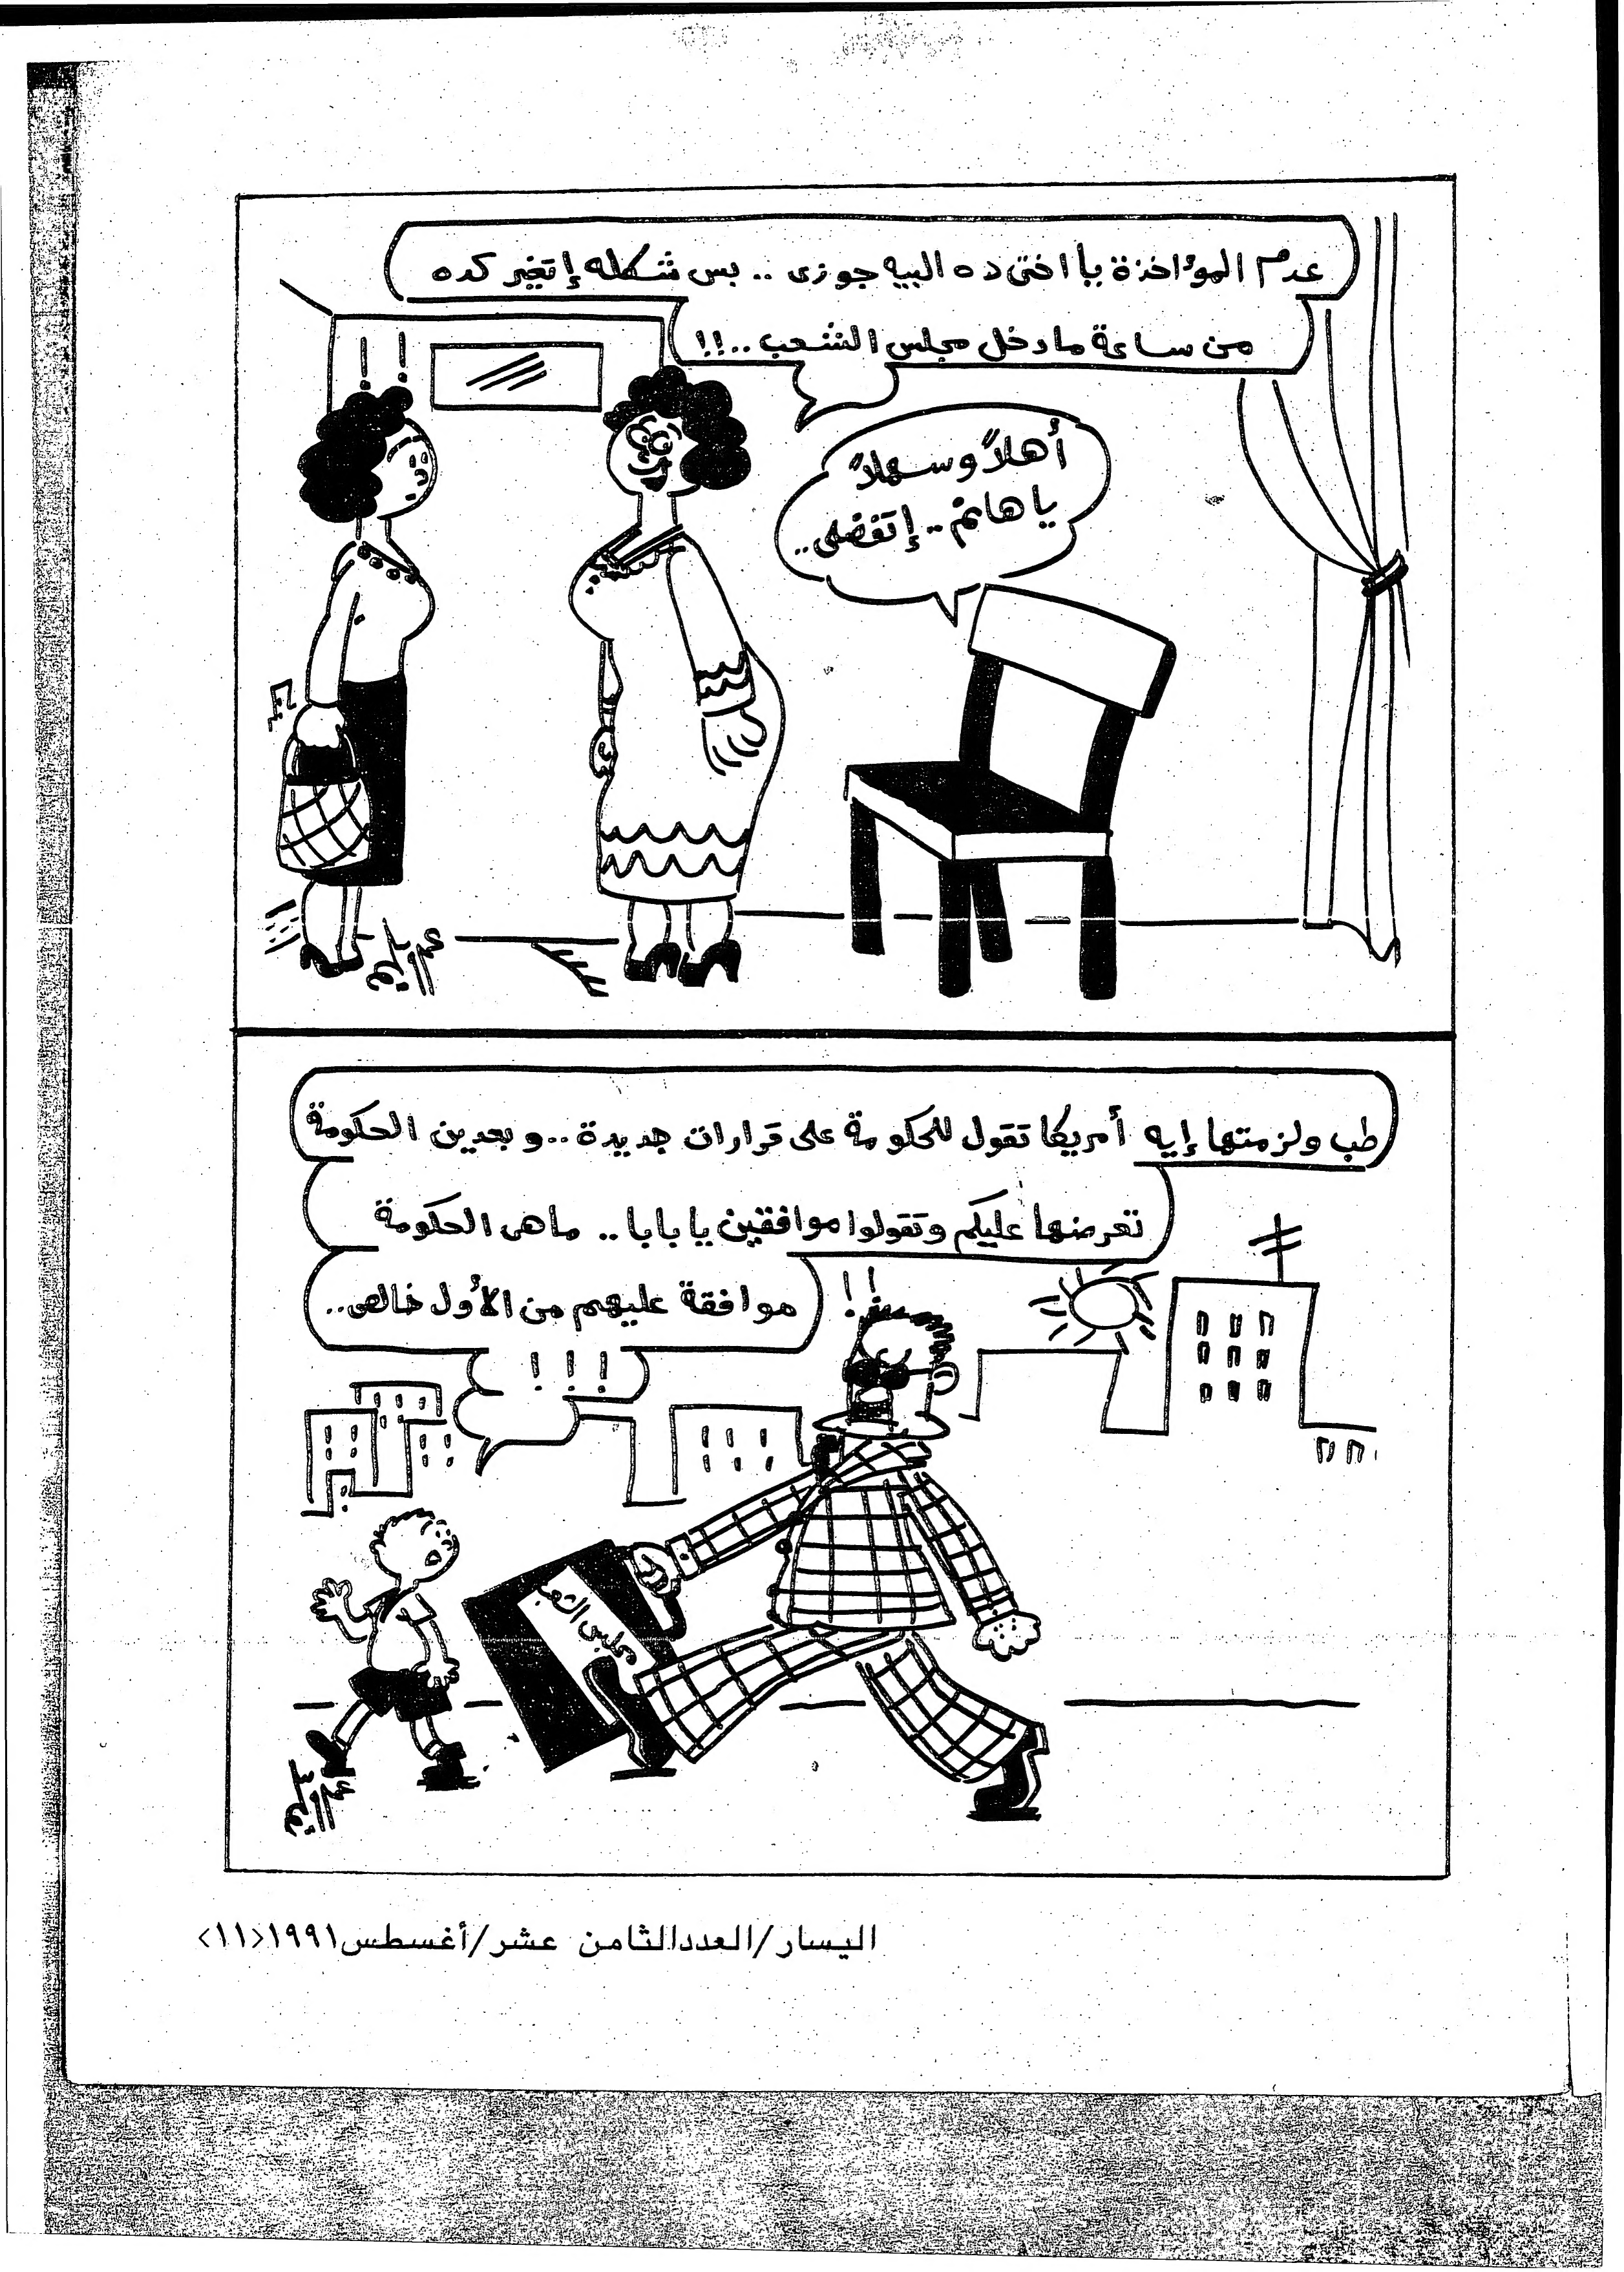 عدم المؤاخذة يا اختى ده البيه جوزى .. بس شكله إتغير كده
من ساعة ما دخل مجلس الشعب ..!!
أهلاً وسهلاً
يا هانم .. إتفضلى ..
طب ولزمتها إيه أمريكا تقول للحكومة على قرارات جديدة .. وبعدين الحكومة
تعرضها عليكم وتقولوا موافقين يا بابا .. ماهى الحكومة
موافقة عليهم من الأول خالص ..
!!!
مجلس الشعب
اليسار/العدد الثامن عشر/أغسطس ١٩٩١<١١>